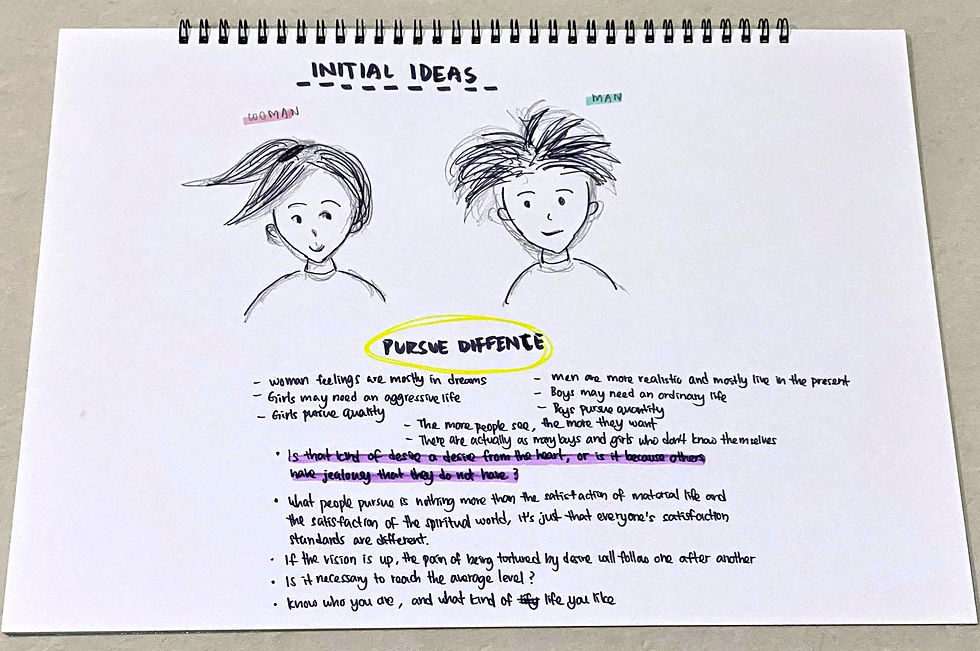 INITIAL IDEAS
WOMAN
MAN
PURSUE DIFFENCE
- woman feelings are mostly in dreams
- Girls may need an aggressive life
- Girls pursue quality
- men are more realistic and mostly live in the present
- Boys may need an ordinary life
- Boys pursue quantity
- The more people see, the more they want
- There are actually as many boys and girls who don't know themselves
• Is that kind of desire a desire from the heart, or is it because others
have jealousy that they do not have?
• What people pursue is nothing more than the satisfaction of material life and
the satisfaction of the spiritual world, it's just that everyone's satisfaction
standards are different.
• If the vision is up, the pain of being tortured by desire will follow one after another
• Is it necessary to reach the average level?
• Know who you are, and what kind of life you like